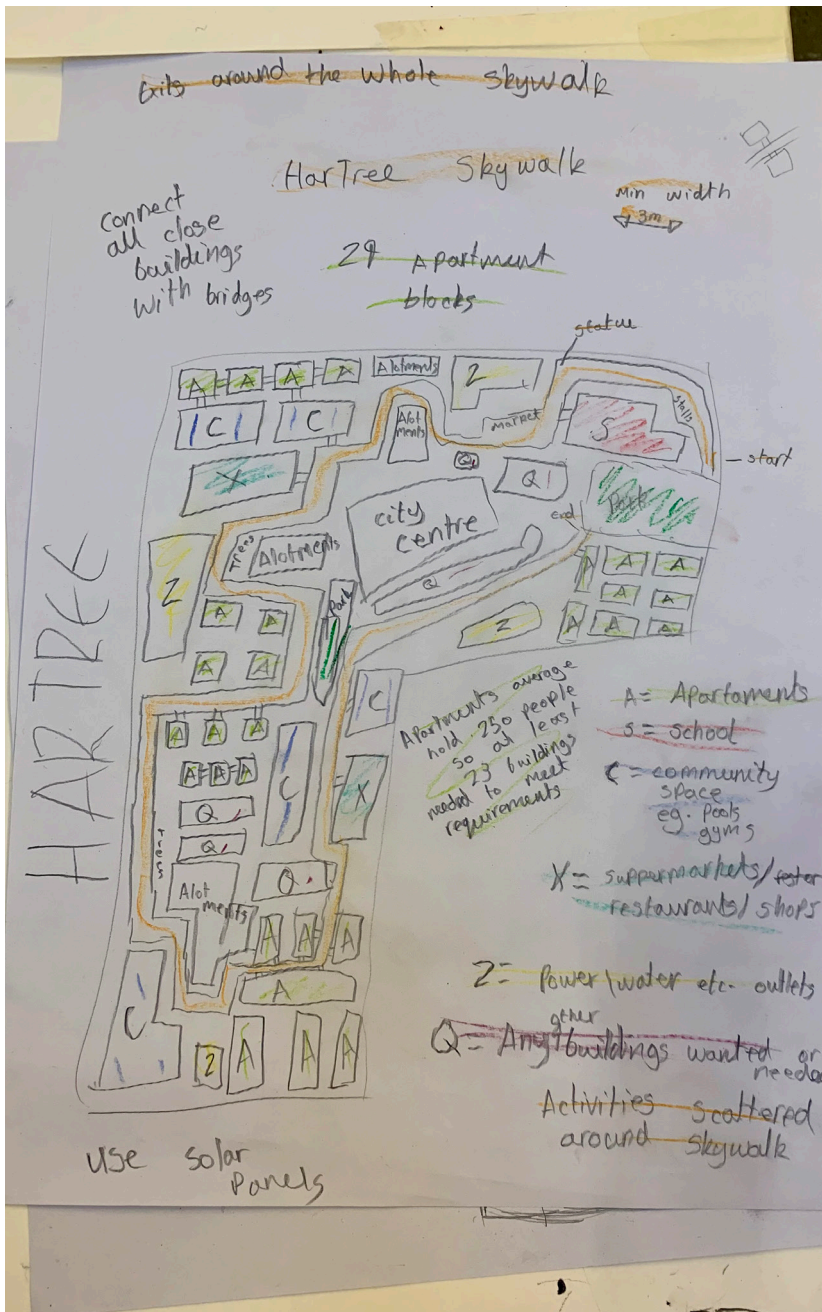 Exits around the whole skywalk
HarTree Skywalk
Min width
3m
connect
all close
buildings
with bridges
29 Apartment
blocks
statue
A A A A
Alotments
Z
C C
Alot
ments
Market
S
stalls
start
X
Q
Q
Park
end
city
centre
Trees
Alotments
Q
Z
A A
A A
Park
Z
A A A
A A
A A A
HARTREE
A A A
A A A
C
C
X
Q
Q
Q
Trees
Alot
ments
A A A
A
C
Z A A A
Apartments average
hold 250 people
so at least
23 buildings
needed to meet
requirements
A = Apartaments
S = School
C = community
space
eg. pools
gyms
X = suppermarkets/
restaurants/shops
Z = Power/water etc. outlets
Q = Any other buildings wanted or
needed
Activities scattered
around skywalk
use solar
Panels